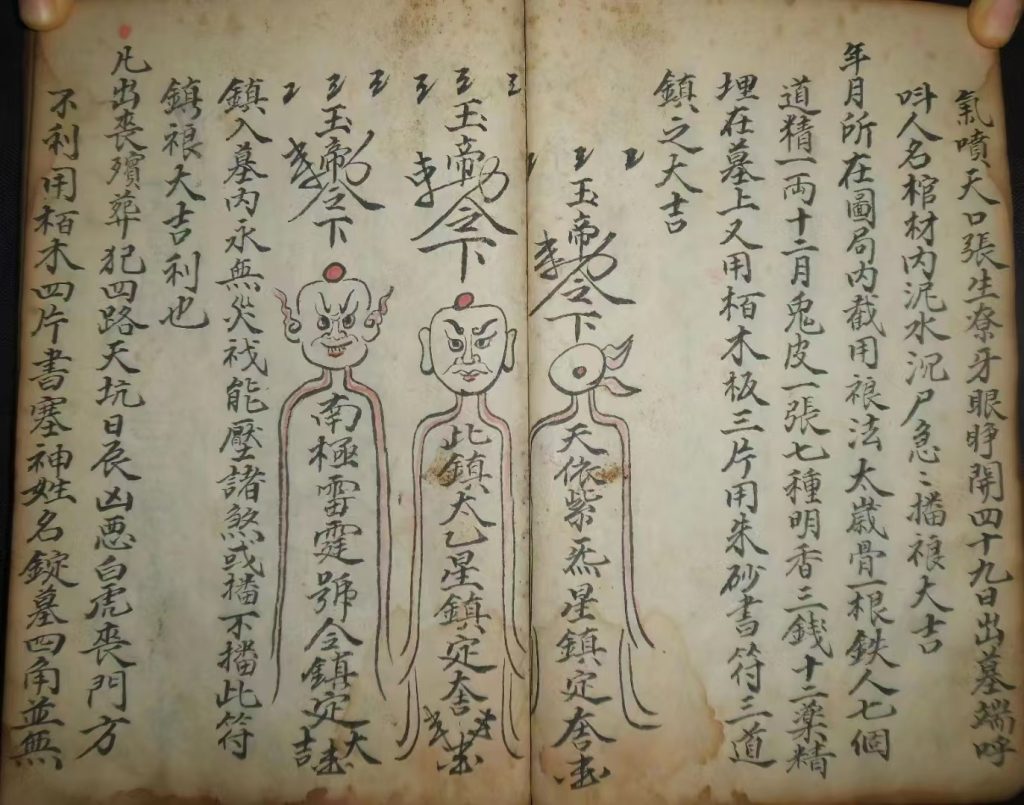 氣噴天口張生尞牙眼睁開四十九日出墓端呼
呌人名棺材内泥水沉尸急〻播裉大吉
年月所在圖局内截用裉法太歲骨一根鉄人七個
道精一両十二月兎皮一張七種明香三銭十二藥精
埋在墓上又用栢木板三片用朱砂書符三道
鎮之大吉
玉帝勅令下
天依紫炁星鎮定
玉帝勅令下
此鎮太乙星鎮定
玉帝勅令下
南極雷霆號令鎮定大吉
鎮入墓内永無災祸能壓諸煞或播不播此符
鎮裉大吉利也
凡出丧殯葬犯四路天坑日辰凶悪白虎丧門方
不利用栢木四片書塞神姓名錠墓四角並無